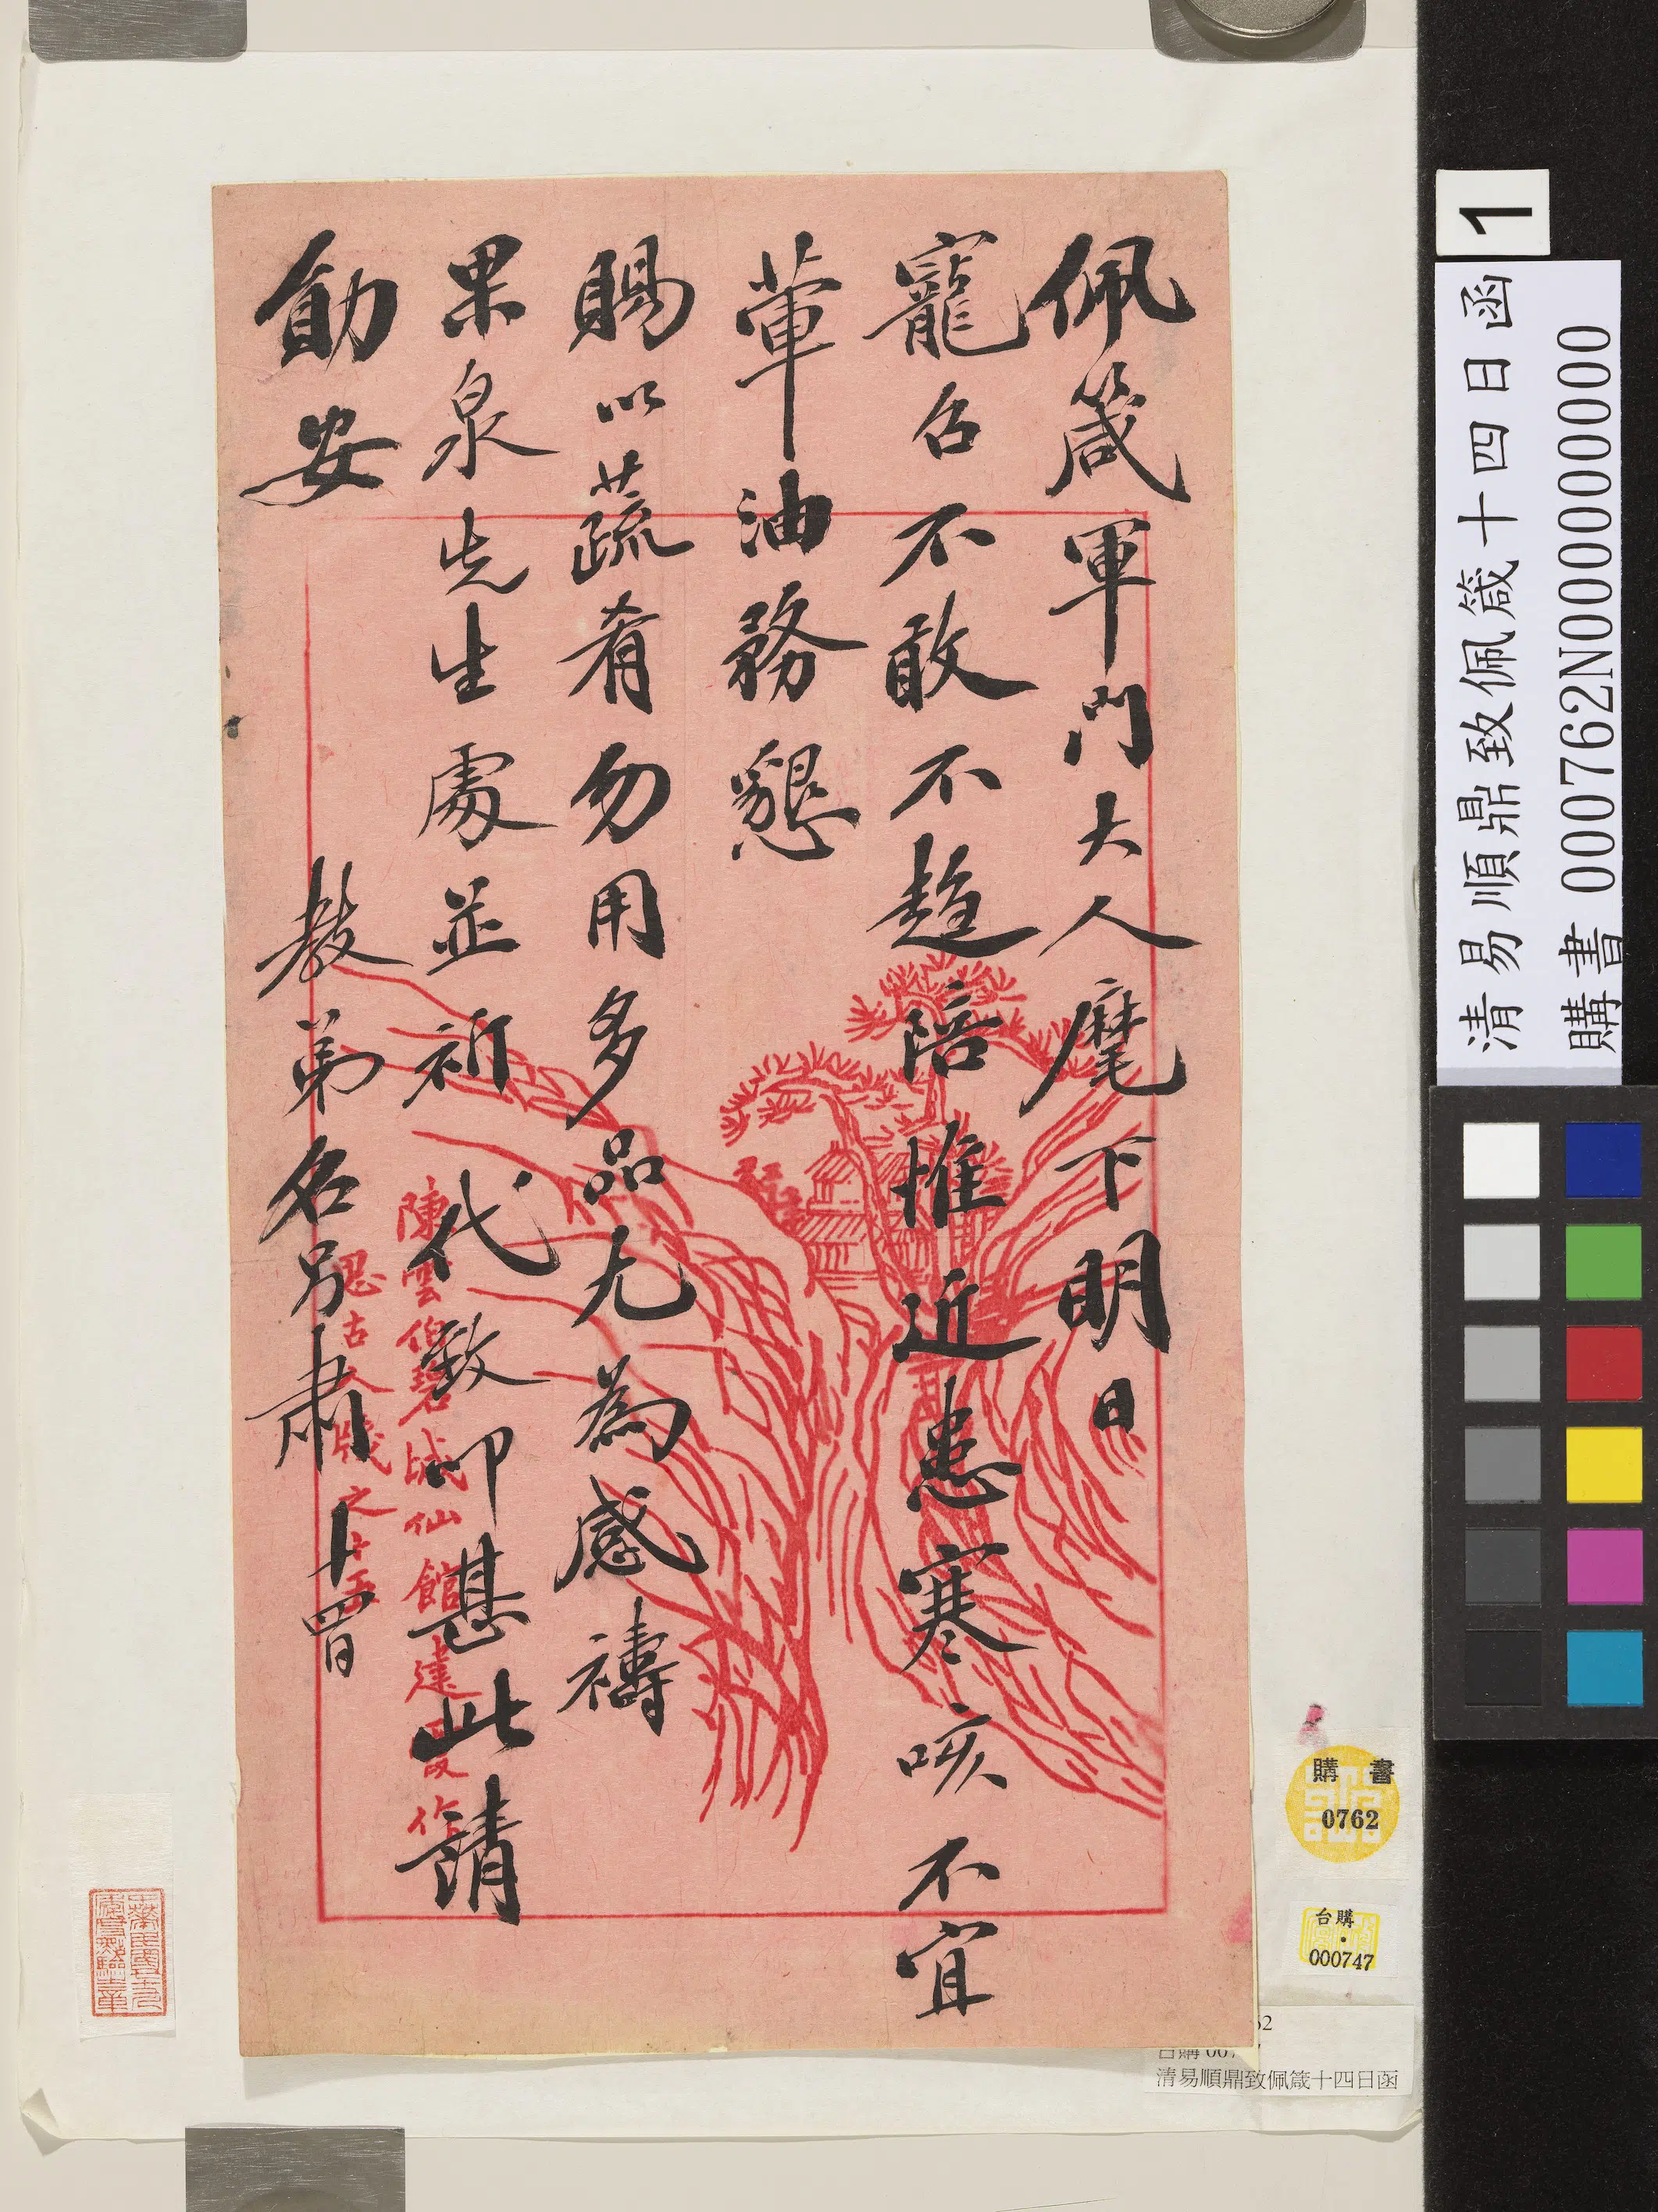 佩箴軍門大人麾下明日
寵召不敢不趨陪惟近患寒咳不宜
葷油務懇
賜以蔬肴勿用多品尤為感禱
果泉先生處並祈代致叩甚此請
勛安
教弟名另肅十四日
陳雲伯碧城仙館
思古人牋之十五
1
清易順鼎致佩箴十四日函
購書 000762N000000000
購書
0762
台購
000747
清易順鼎致佩箴十四日函